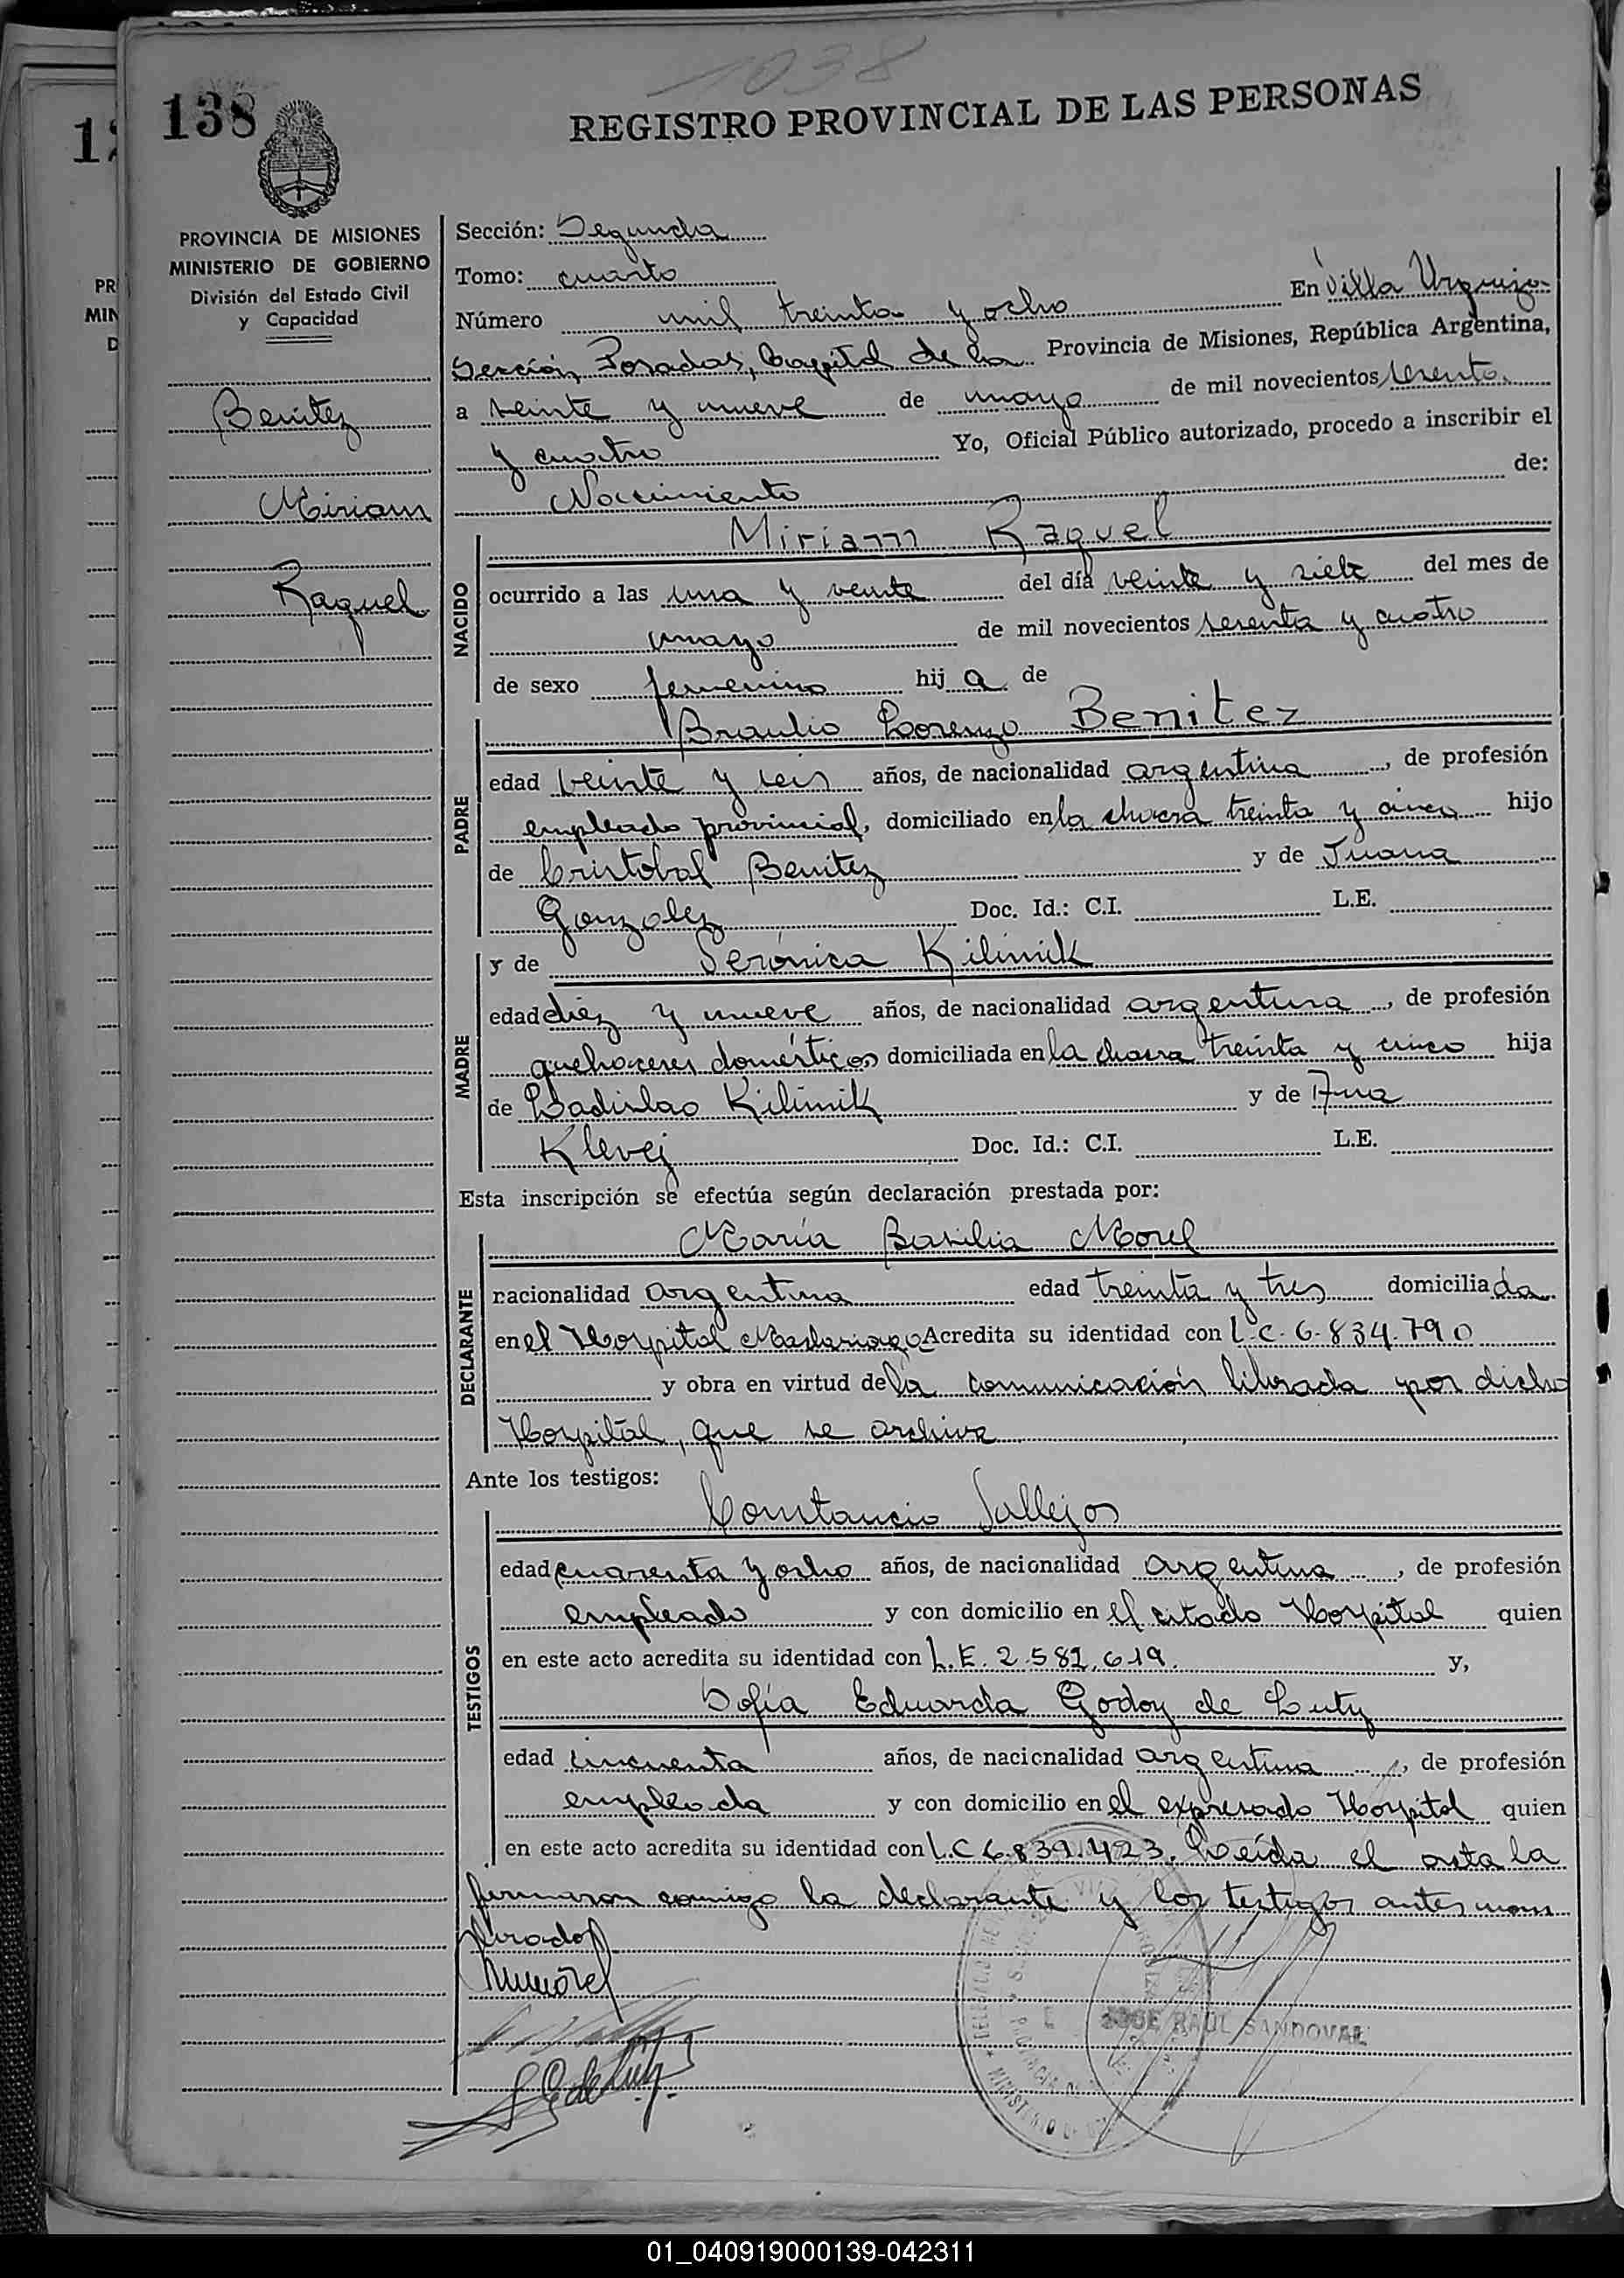 1038
138
REGISTRO PROVINCIAL DE LAS PERSONAS
PROVINCIA DE MISIONES
MINISTERIO DE GOBIERNO
División del Estado Civil
y Capacidad
Benitez
Miriam
Raquel
Sección: Segunda
Tomo: cuarto
Número mil treinta y ocho En Villa Urquiza
Sección Posadas, Capital de la Provincia de Misiones, República Argentina,
a veinte y nueve de mayo de mil novecientos sesenta
y cuatro Yo, Oficial Público autorizado, procedo a inscribir el
Nacimiento de:
NACIDO
Miriam Raquel
ocurrido a las una y veinte del día veinte y siete del mes de
mayo de mil novecientos sesenta y cuatro
de sexo femenino hij a de
PADRE
Braulio Lorenzo Benitez
edad veinte y seis años, de nacionalidad argentina, de profesión
empleado provincial, domiciliado en la chacra treinta y cinco hijo
de Cristobal Benitez y de Juana
Gonzalez Doc. Id.: C.I. L.E.
MADRE
y de Serónica Kilimik
edad diez y nueve años, de nacionalidad argentina, de profesión
quehaceres domésticos domiciliada en la chacra treinta y cinco hija
de Ladislao Kilimik y de Ana
Klevej Doc. Id.: C.I. L.E.
Esta inscripción se efectúa según declaración prestada por:
DECLARANTE
María Basilia Morel
nacionalidad argentina edad treinta y tres domiciliada
en el Hospital Madariaga Acredita su identidad con L.C. 6.834.790
y obra en virtud de la comunicación librada por dicho
Hospital, que se archiva
Ante los testigos:
TESTIGOS
Constancio Vallejos
edad cuarenta y ocho años, de nacionalidad argentina, de profesión
empleado y con domicilio en el citado Hospital quien
en este acto acredita su identidad con L.E. 2.582.619. y,
Sofía Eduarda Godoy de Luty
edad cincuenta años, de nacionalidad argentina, de profesión
empleada y con domicilio en el expresado Hospital quien
en este acto acredita su identidad con L.C 6.839.423. Leída el acta la
firmaron conmigo la declarante y los testigos antes nom
brados
Mmorel
S E de Luty
JOSE RAUL SANDOVAL
01_040919000139-042311